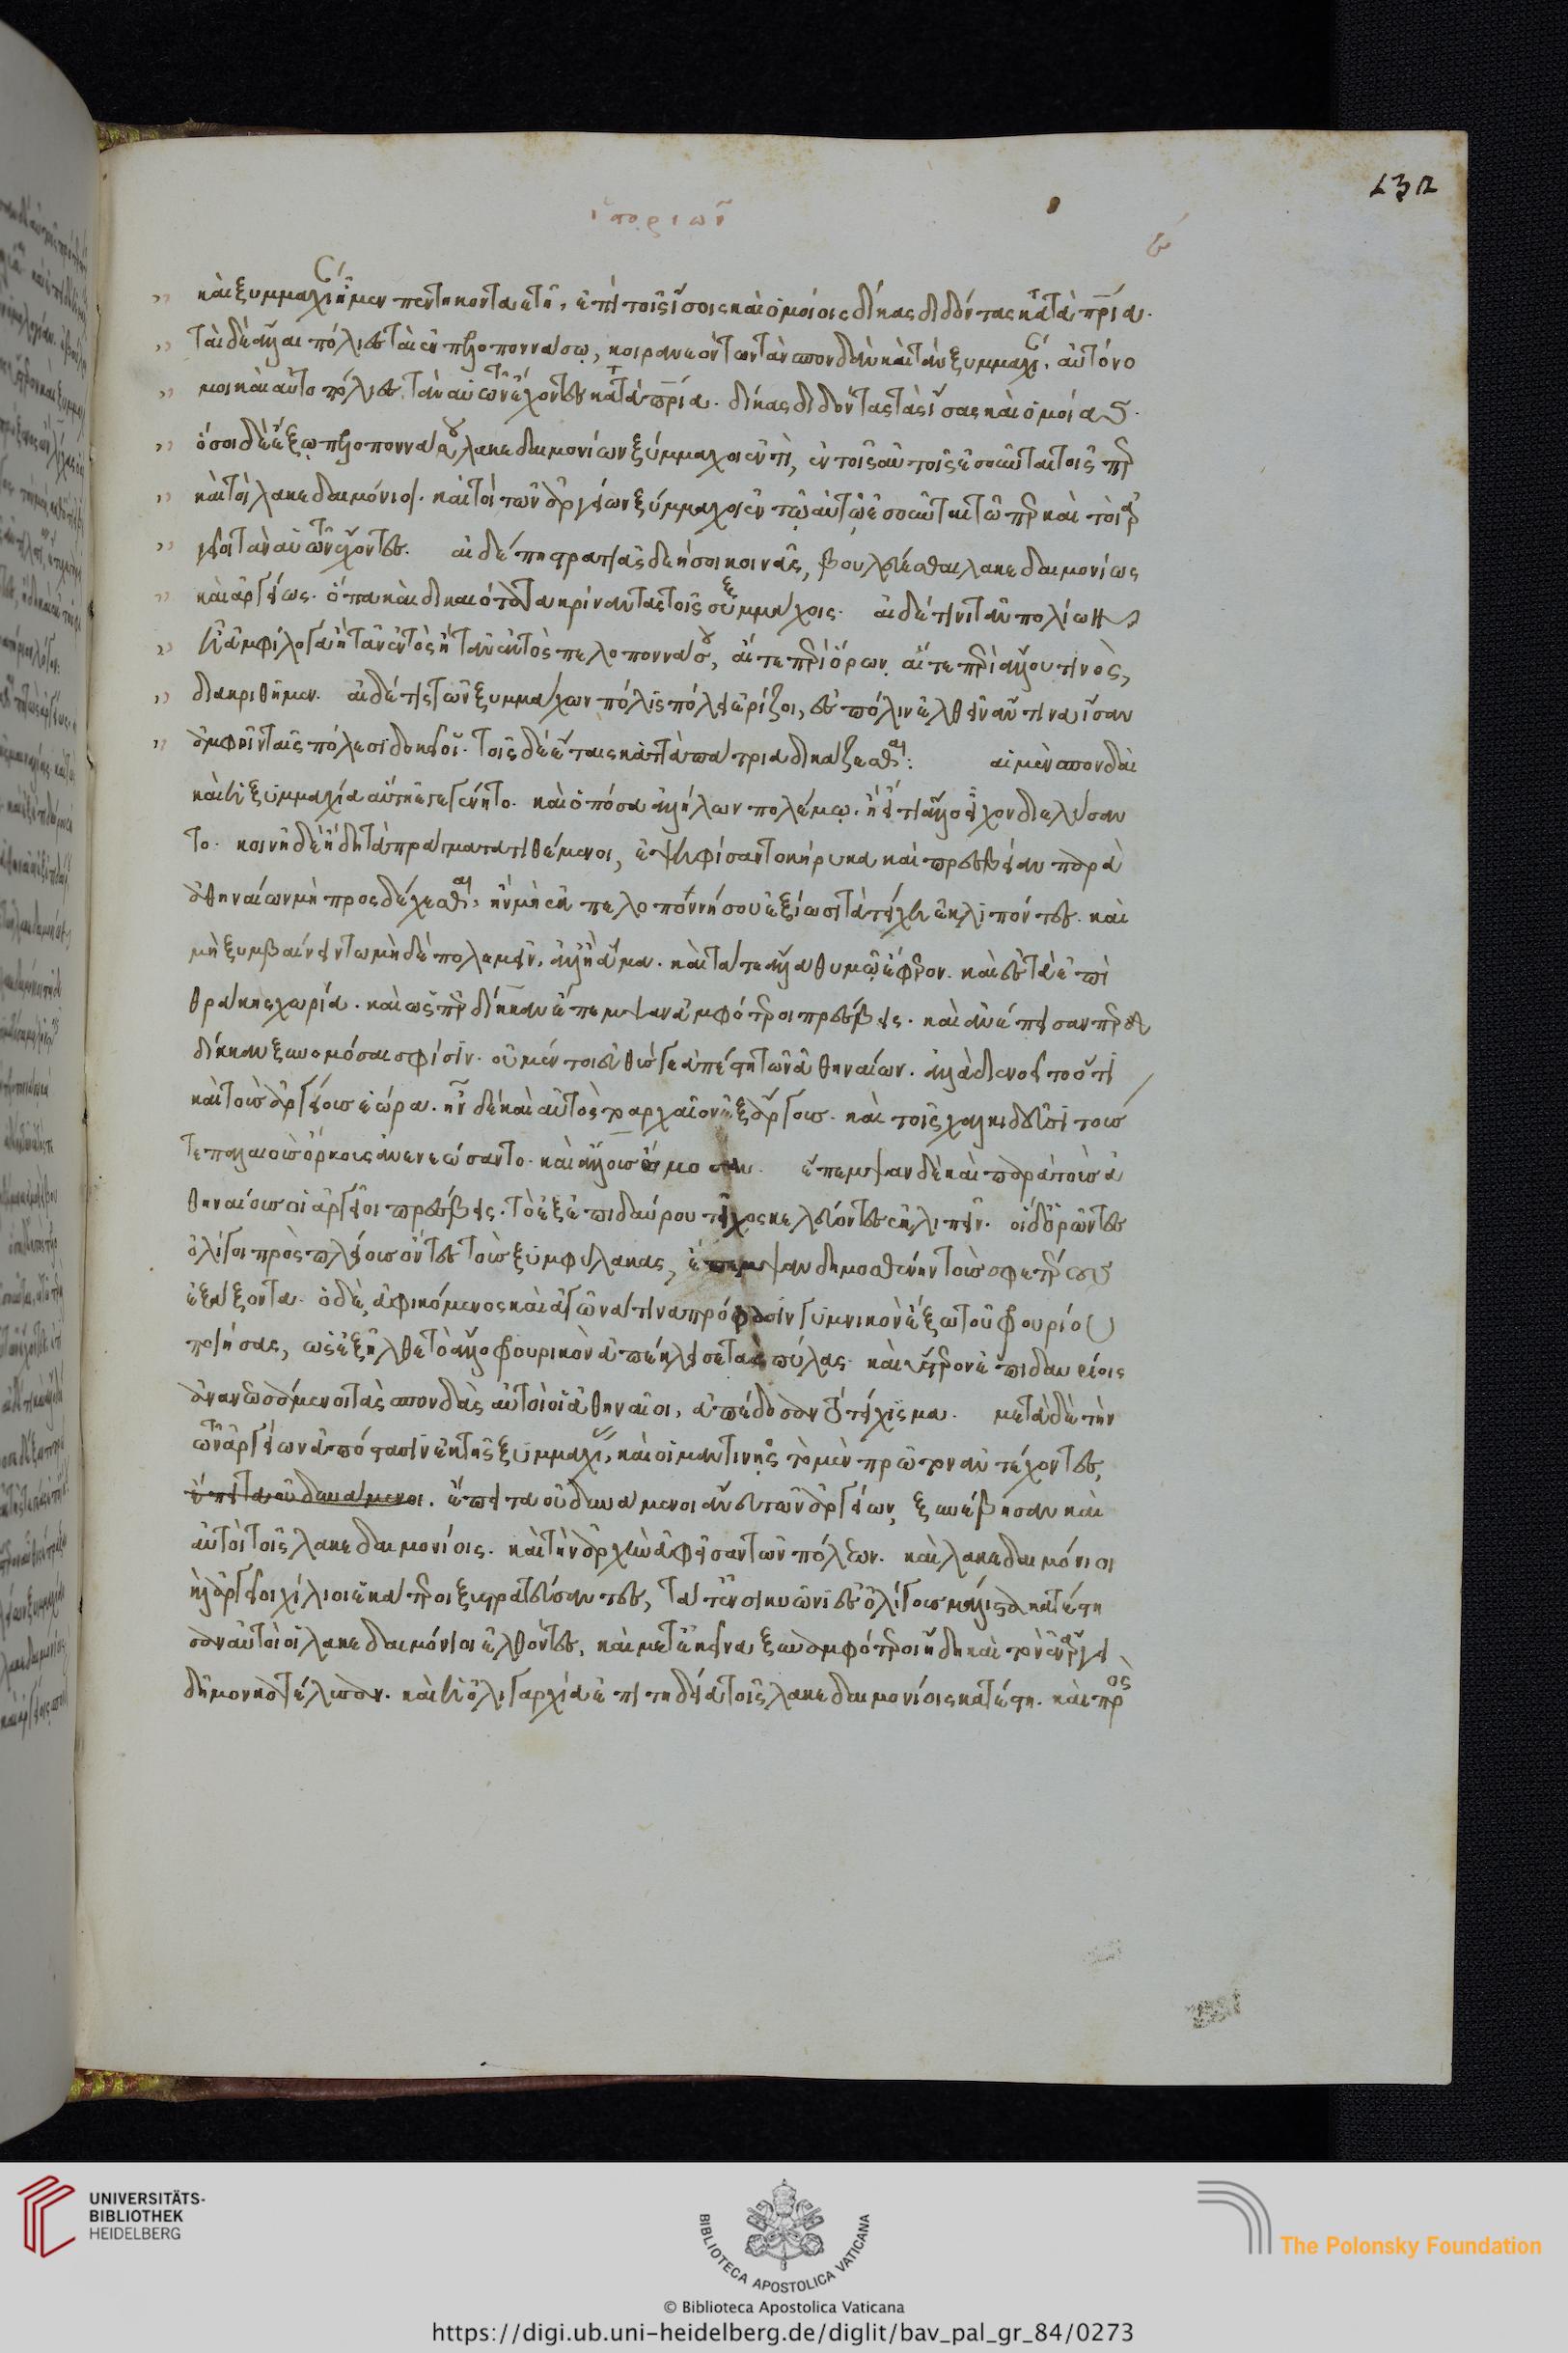 132
ἱστοριῶν
καὶ ξυμμαχίαν ἦμεν πεντήκοντα ἔτη, ἐπὶ τοῖς ἴσοις καὶ ὁμοίοις δίκας διδόντας καττὰ πάτρια.
ταὶ δὲ ἄλλαι πόλιες ταὶ ἐν πελοποννάσῳ, κοινανεόντων τᾶν σπονδᾶν καὶ τᾶν ξυμμαχιᾶν, αὐτόνο
μοι καὶ αὐτοπόλιες τὰν αὑτῶν ἔχοντες καττὰ πάτρια. δίκας διδόντας τὰς ἴσας καὶ ὁμοίας.
ὅσοι δὲ ἔξω πελοποννάσου λακεδαιμονίων ξύμμαχοι ἐντὶ, ἐν τοῖς αὐτοῖς ἐσοῦνται τοῖς περ
καὶ τοὶ λακεδαιμόνιοι. καὶ τοὶ τῶν ἀργείων ξύμμαχοι ἐν τῷ αὐτῷ ἐσοῦνται τῷ περ καὶ τοὶ ἀρ
γεῖοι τὰν αὑτῶν ἔχοντες. αἰ δέ πη στρατιᾶς δεήσοι κοινᾶς, βουλεύεσθαι λακεδαιμονίως
καὶ ἀργείως. ὅπα καὶ δικαιότατα κρίναντας τοῖς ξυμμάχοις. αἰ δέ τινι τᾶν πολίων
ἦ ἀμφίλογα ἢ τᾶν ἐντὸς ἢ τᾶν ἐκτὸς πελοποννάσου, αἴτε περὶ ὅρων αἴτε περὶ ἄλλου τινὸς,
διακριθῆμεν. αἰ δέ τις τῶν ξυμμάχων πόλις πόλει ἐρίζοι, ἐς πόλιν ἐλθεῖν ἅν τινα ἴσαν
ἀμφοῖν ταῖς πόλεσι δοκείοι. τοῖς δὲ ἔταις καττὰ πάτρια δικάζεσθαι: αἱ μὲν σπονδαὶ
καὶ ἡ ξυμμαχία αὕτη ἐγεγένητο. καὶ ὁπόσα ἀλλήλων πολέμῳ, ἢ εἴ τι ἄλλο εἶχον διελύσαν
το. κοινῇ δὲ ἤδη τὰ πράγματα τιθέμενοι, ἐψηφίσαντο κήρυκα καὶ πρεσβείαν παρὰ
ἀθηναίων μὴ προσδέχεσθαι, ἢν μὴ ἐκ πελοποννήσου ἐξίωσι τὰ τείχη ἐκλιπόντες. καὶ
μὴ ξυμβαίνειν τῳ μηδὲ πολεμεῖν, ἀλλ' ἢ ἅμα. καὶ τά τε ἄλλα θυμῷ ἔφερον. καὶ ἐς τὰ ἐπὶ
θράκης χωρία. καὶ ὡς περδίκκαν ἔπεμψαν ἀμφότεροι πρέσβεις. καὶ ἀνέπεισαν περ
δίκκαν ξυνομόσαι σφίσιν. οὐ μέντοι εὐθύς γε ἀπέστη τῶν ἀθηναίων. ἀλλὰ διενοεῖτο ὅτι
καὶ τοὺς ἀργείους ἑώρα. ἦν δὲ καὶ αὐτὸς τὸ ἀρχαῖον ἐξ ἄργους. καὶ τοῖς χαλκιδεῦσι τούς
τε παλαιοὺς ὅρκους ἀνενεώσαντο. καὶ ἄλλους ὤμοσαν. ἔπεμψαν δὲ καὶ παρὰ τοὺς ἀ
θηναίους οἱ ἀργεῖοι πρέσβεις. τὸ ἐξ ἐπιδαύρου τεῖχος κελεύοντες ἐκλιπεῖν. οἱ δ' ὁρῶντες
ὀλίγοι πρὸς πλείους ὄντες τοὺς ξυμφύλακας, ἔπεμψαν δημοσθένην τοὺς σφετέρους
ἐξάξοντα. ὁ δὲ, ἀφικόμενος καὶ ἀγῶνά τινα πρόφασιν γυμνικὸν ἔξω τοῦ φρουρίου
ποιήσας, ὡς ἐξῆλθε τὸ ἄλλο φρουρικὸν ἀπέκλεισε τὰς πύλας. καὶ ὕστερον ἐπιδαυρίοις
ἀνανεωσάμενοι τὰς σπονδὰς αὐτοὶ οἱ ἀθηναῖοι, ἀπέδοσαν τὸ τείχισμα. μετὰ δὲ τὴν
τῶν ἀργείων ἀπόστασιν ἐκ τῆς ξυμμαχίας, καὶ οἱ μαντινῆς τὸ μὲν πρῶτον ἀντέχοντες,
ἔπειτα οὐ δυνάμενοι. ἔπειτα οὐ δυνάμενοι ἄνευ τῶν ἀργείων, ξυνέβησαν καὶ
αὐτοὶ τοῖς λακεδαιμονίοις. καὶ τὴν ἀρχὴν ἀφεῖσαν τῶν πόλεων. καὶ λακεδαιμόνιοι
καὶ ἀργεῖοι χίλιοι ἑκάτεροι ξυστρατεύσαντες, τά τ' ἐν σικυῶνι ἐς ὀλίγους μᾶλλον κατέστη
σαν αὐτοὶ οἱ λακεδαιμόνιοι ἐλθόντες, καὶ μετ' ἐκεῖνα ξυναμφότεροι ἤδη καὶ τὸν ἐν ἄργει
δῆμον κατέλυσαν. καὶ ἡ ὀλιγαρχία ἐπιτηδεία τοῖς λακεδαιμονίοις κατέστη. καὶ πρὸς
UNIVERSITÄTS-
BIBLIOTHEK
HEIDELBERG
BIBLIOTECA APOSTOLICA VATICANA
The Polonsky Foundation
© Biblioteca Apostolica Vaticana
https://digi.ub.uni-heidelberg.de/diglit/bav_pal_gr_84/0273